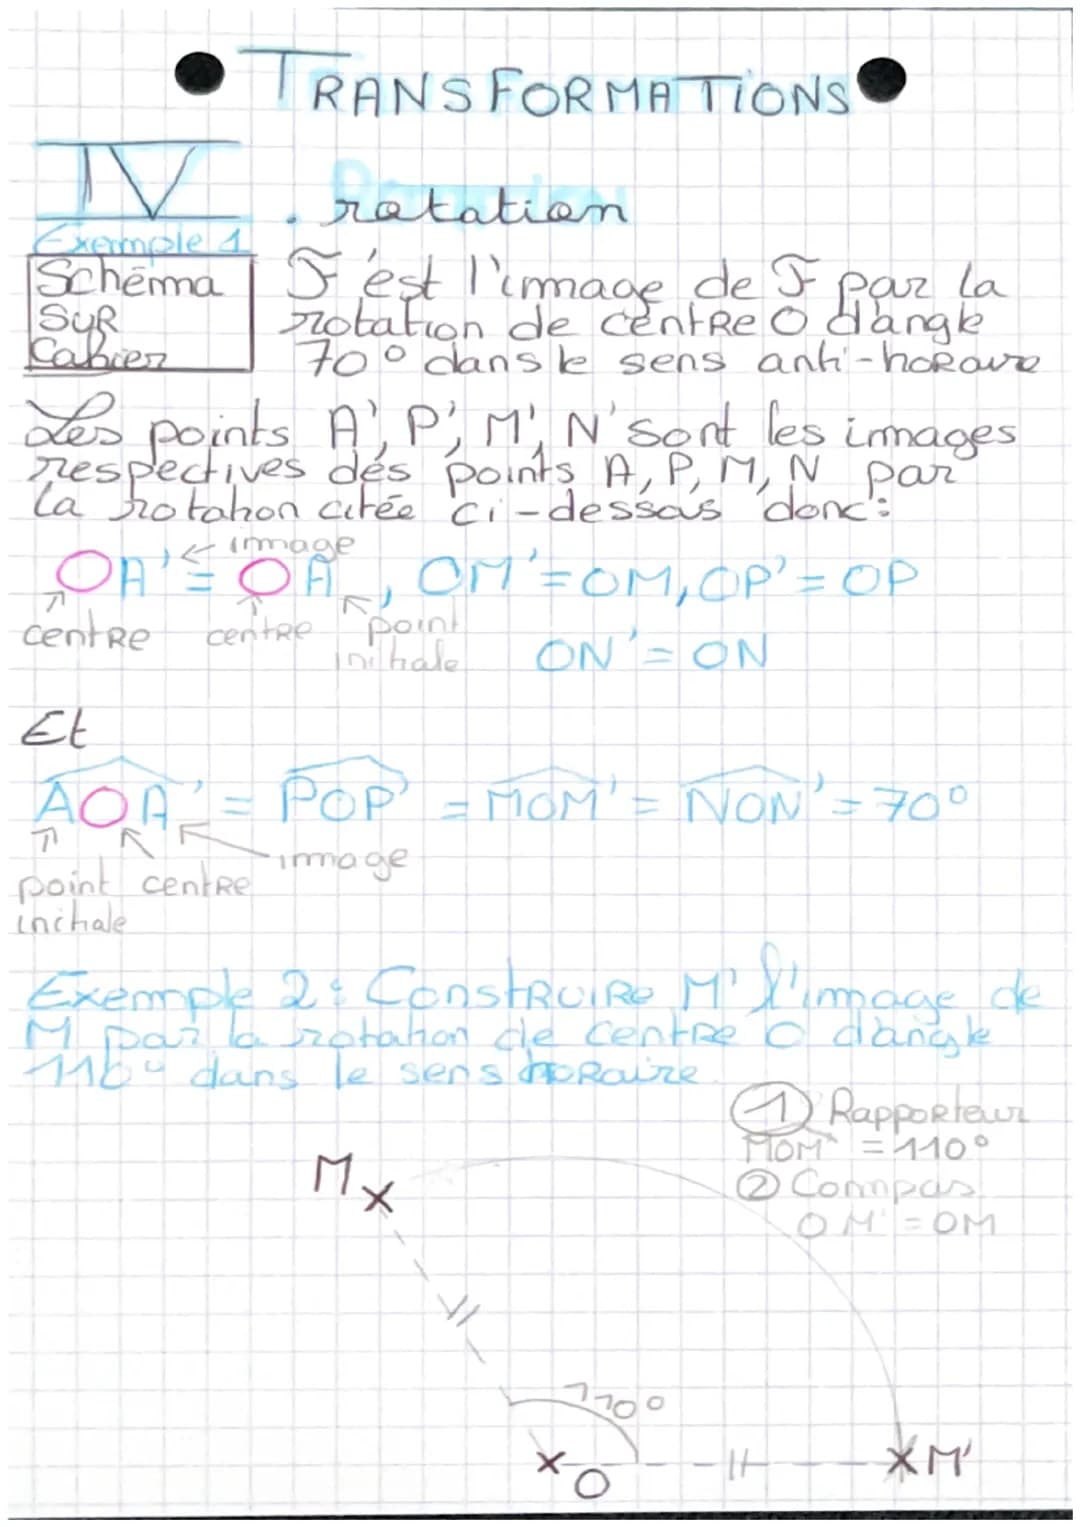 TRANSFORMATIONS
IV . rotation
Exemple 1
Schéma
SUR
Cahier
F' est l'image de F par la
rotation de centre O d'angle
70° dans le sens anti-horaire
Les points A', P', M', N' sont les images
respectives des points A, P, M, N par
la rotation citée ci-dessous donc:
image
OA' = OA, OM' = OM, OP' = OP
centre centre point
initiale ON' = ON
Et
AOA' = POP' = MOM' = NON' = 70°
image
point centre
initiale
Exemple 2: Construire M' l'image de
M par la rotation de centre O d'angle
110° dans le sens horaire
① Rapporteur
MOM' = 110°
② Compas
OM' = OM
M
110°
O
M'